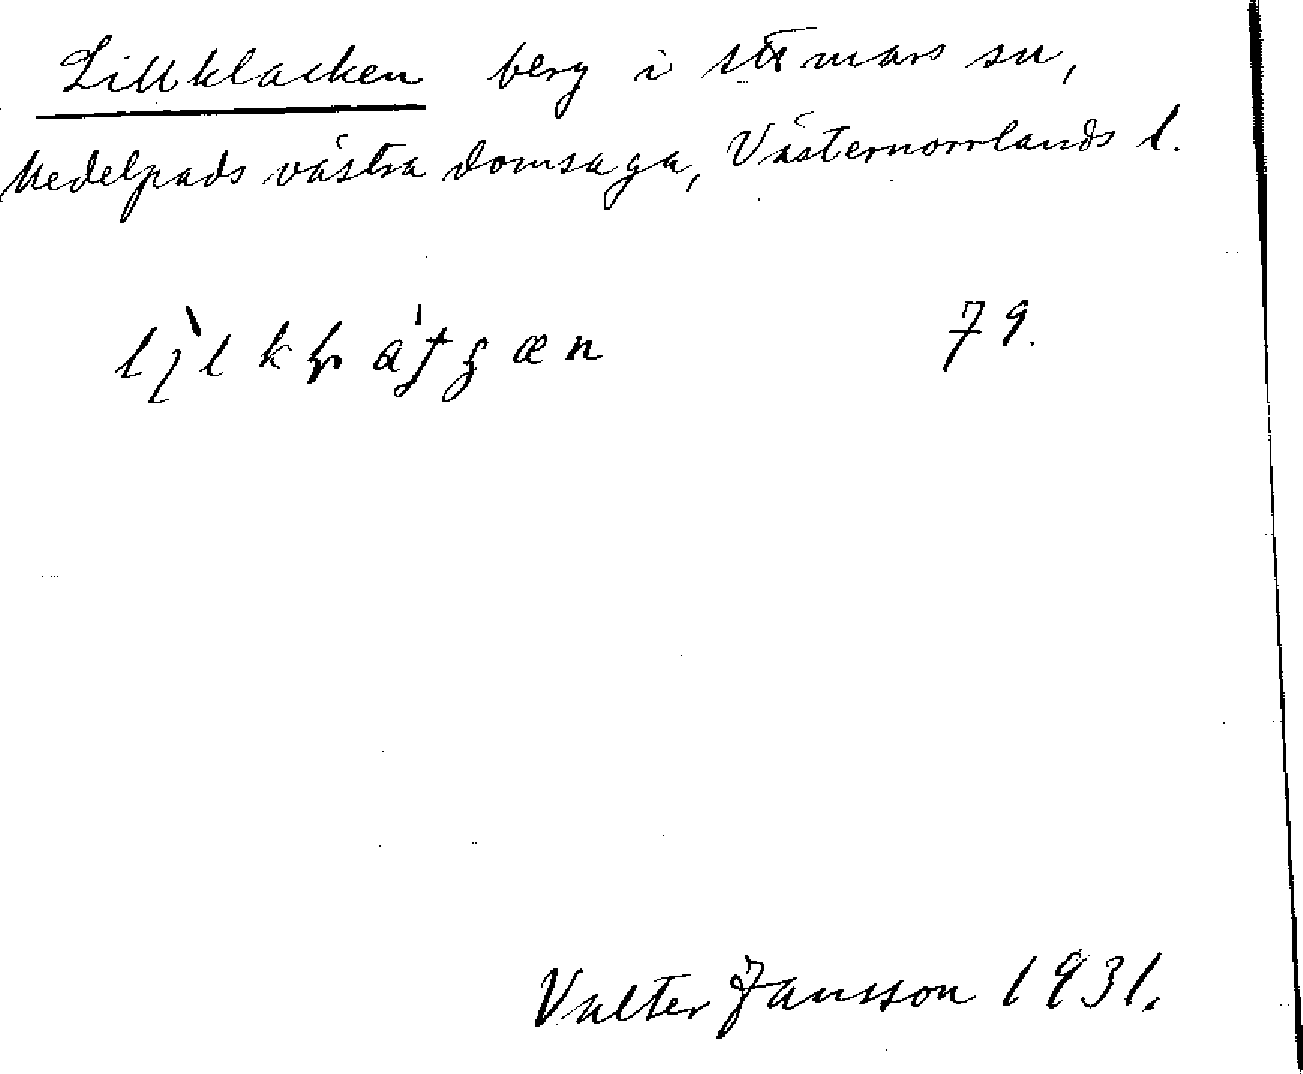 Lillklacken berg i Attmars sn,
Medelpads västra domsaga, Västernorrlands l.
79.
Valter Jansson 1931.